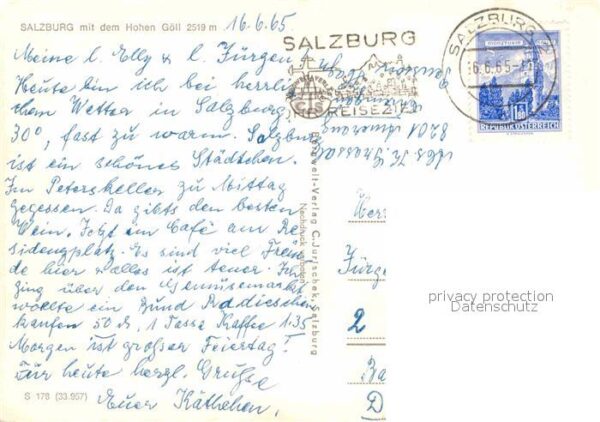 SALZBURG mit dem Hohen Göll 2519 m
16.6.65
Meine l. Elly & l. Jürgen!
Heute bin ich bei herrli-
chem Wetter in Salzburg
30°, fast zu warm. Salzburg
ist ein schönes Städtchen.
Im Peterskeller zu Mittag
gegessen. Da gibts den besten
Wein. Jetzt im Café am Re-
sidenzplatz. Es sind viel Frem-
de hier & alles ist teuer. Ich
ging über den Gemüsemarkt
wollte ein Bund Radieschen
kaufen 50 d, 1 Tasse Kaffee 1.35
Morgen ist großer Feiertag!
Für heute herzl. Grüße
Euer Käthchen.
S 178 (33.957)
SALZBURG
IHR REISEZIEL
SALZBURG
6.6.65
REPUBLIK ÖSTERREICH
8201
-Verlag C. Jurischek, Salzburg
Nachdruck verboten
Herr
Jürge
2
Ba
D
privacy protection
Datenschutz